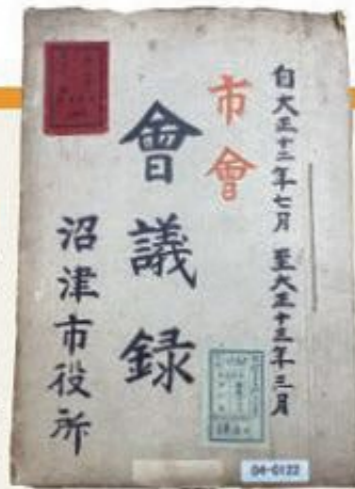 自大正十二年七月 至大正十三年三月
市會
會議録
沼津市役所
04-0122